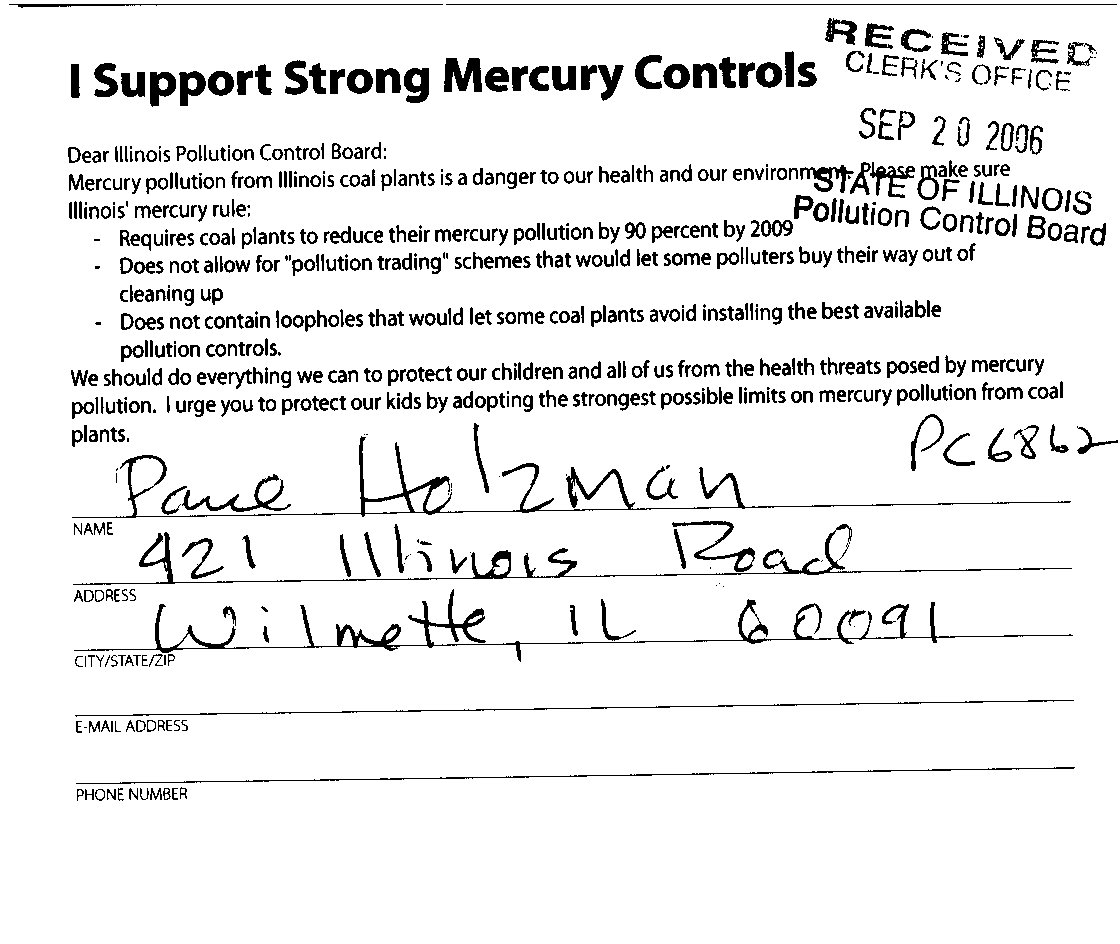 I Support Strong Mercury Controls
RECEIVED
CLERK'S OFFICE
SEP 20 2006
STATE OF ILLINOIS
Pollution Control Board
Dear Illinois Pollution Control Board:
Mercury pollution from Illinois coal plants is a danger to our health and our environment. Please make sure
Illinois' mercury rule:
- Requires coal plants to reduce their mercury pollution by 90 percent by 2009
- Does not allow for "pollution trading" schemes that would let some polluters buy their way out of
cleaning up
- Does not contain loopholes that would let some coal plants avoid installing the best available
pollution controls.
We should do everything we can to protect our children and all of us from the health threats posed by mercury
pollution. I urge you to protect our kids by adopting the strongest possible limits on mercury pollution from coal
plants.
PC6862
Holzman
NAME
421 Illinois Road
ADDRESS
Wilmette, IL 60091
CITY/STATE/ZIP
E-MAIL ADDRESS
PHONE NUMBER